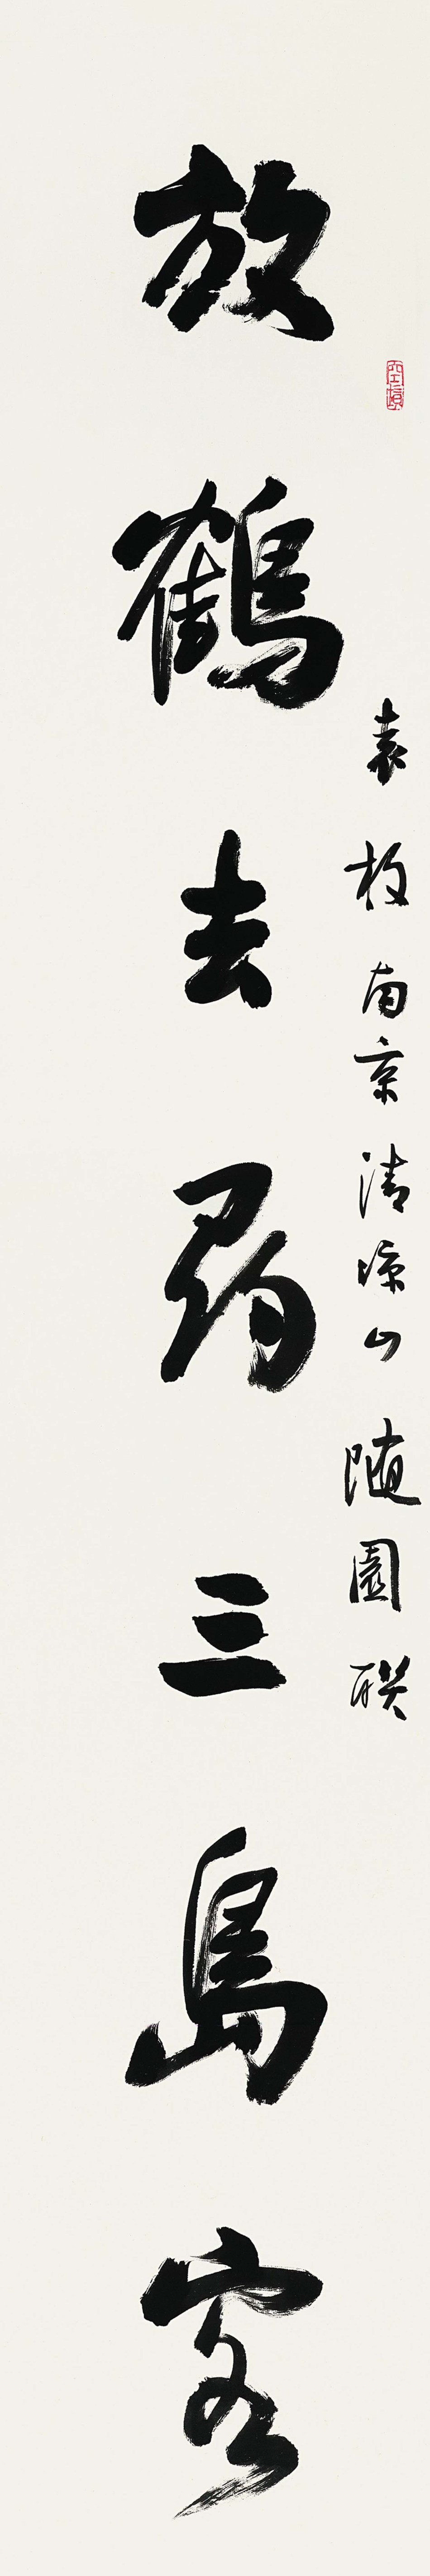 袁枚南京清涼山随園联
放鶴去尋三島客